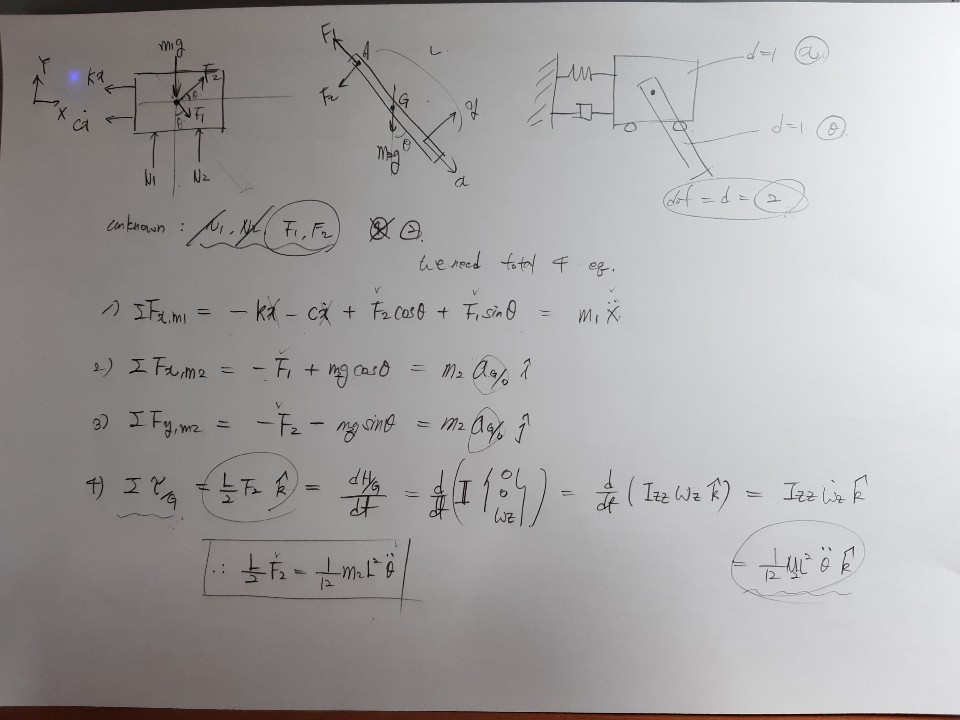 Y
X
kx
cẋ
m₁g
F₂
θ
θ
F₁
N₁ N₂
F₁
A
F₂
L
G
θ
m₂g
y
x
d=1 (x)
d=1 (θ)
dof = d = 2
unknown : N₁, N₂, F₁, F₂ ②.
We need total 4 eq.
1) ΣFx,m₁ = - kx - cẋ + F₂cosθ + F₁sinθ = m₁ẍ
2) ΣFx,m₂ = - F₁ + m₂g cosθ = m₂ a_G/o î
3) ΣFy,m₂ = - F₂ - m₂g sinθ = m₂ a_G/o ĵ
4) Στ_G = L/2 F₂ k̂ = dH_G/dt = d/dt (I {0 0 ωz}) = d/dt (Izz ωz k̂) = Izz ω̇z k̂
∴ L/2 F₂ = 1/12 m₂L² θ̈
= 1/12 m₂L² θ̈ k̂